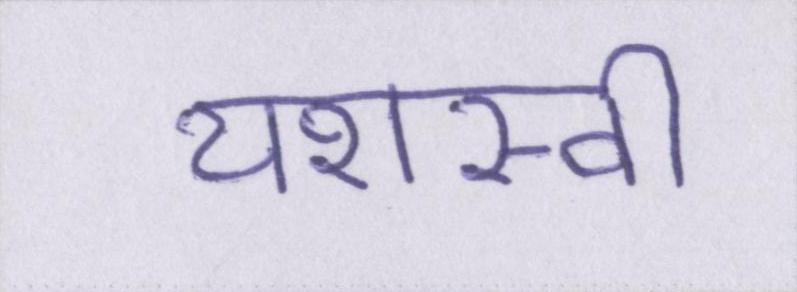 यशस्वी